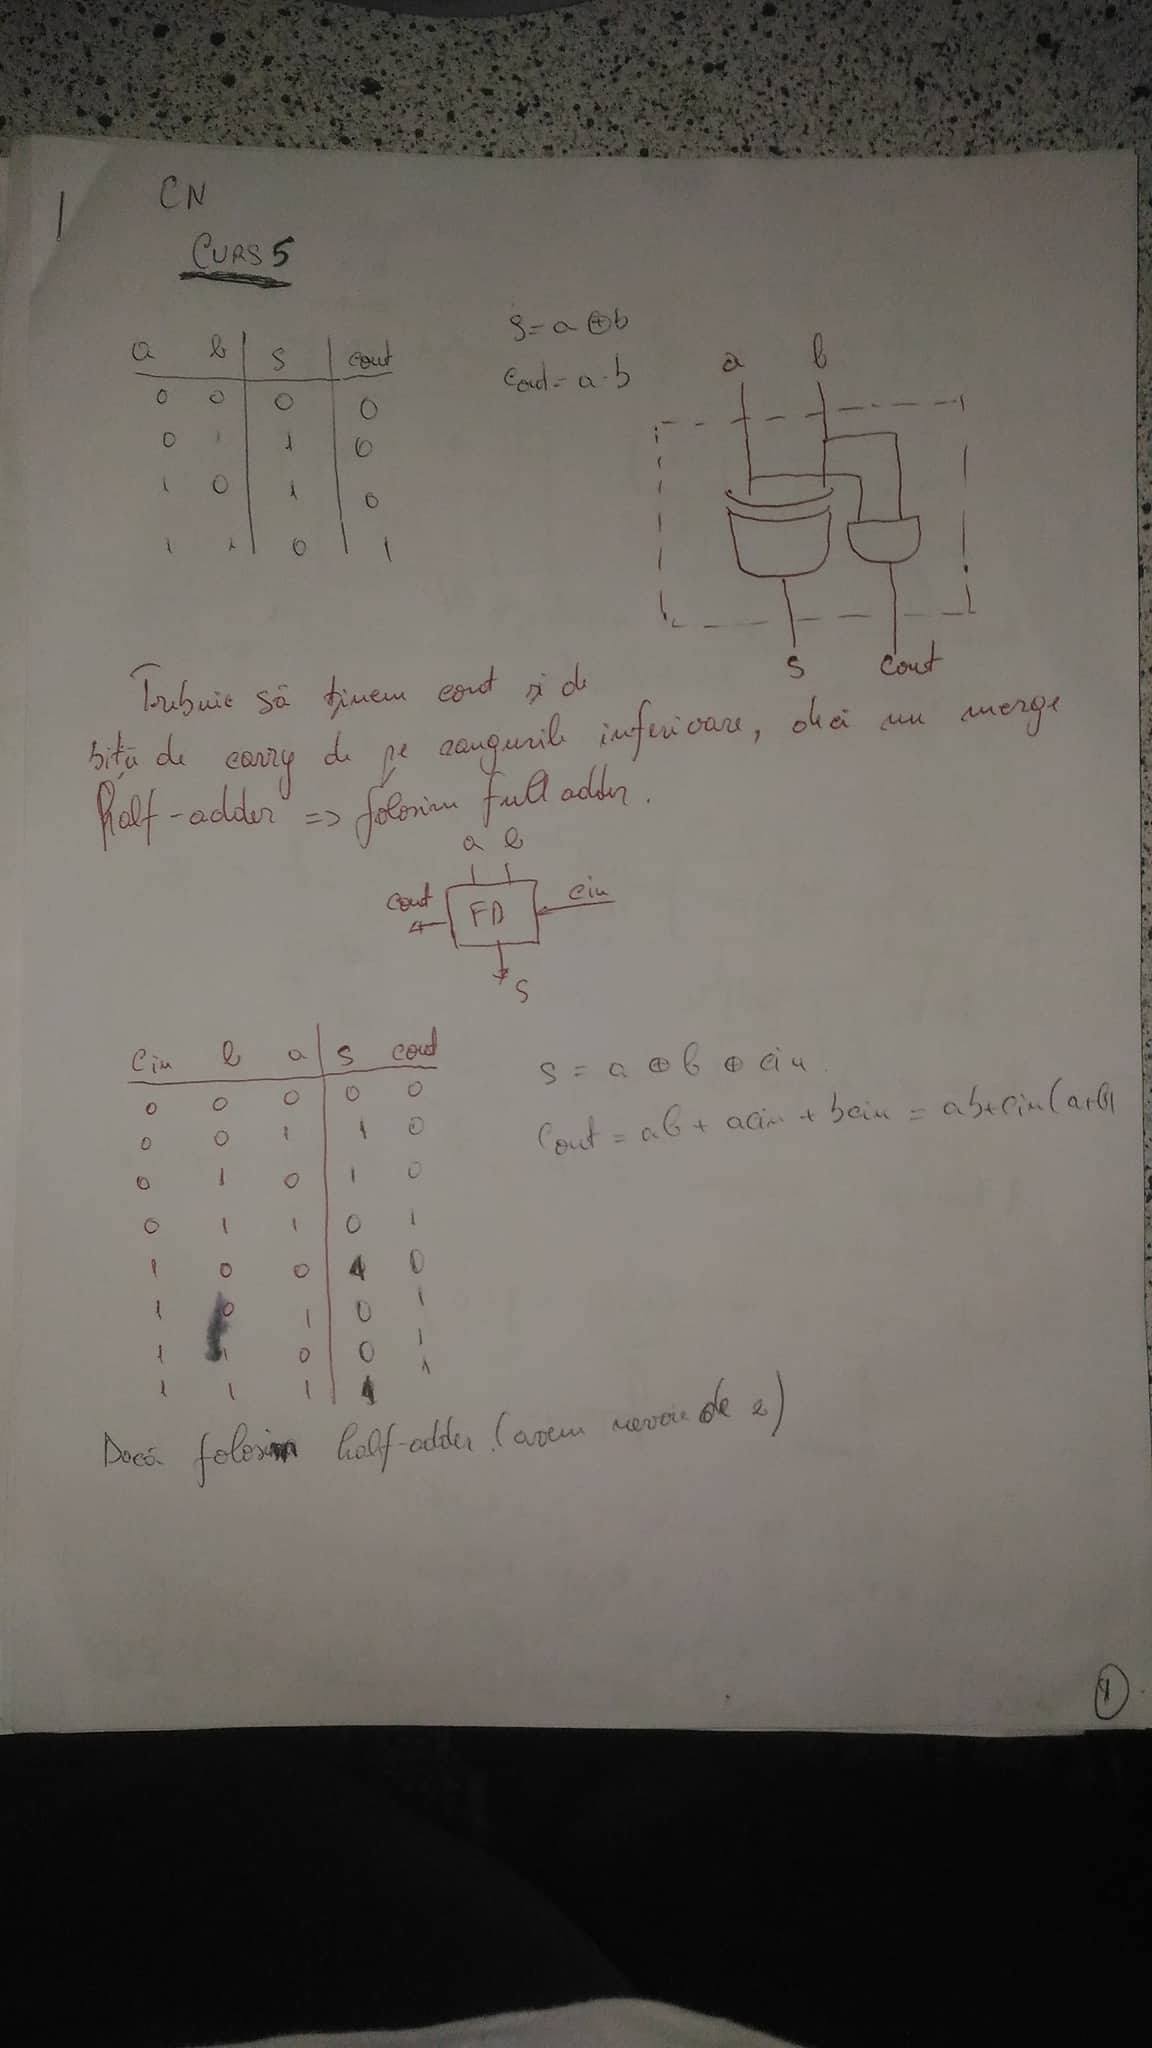 1
CN
CURS 5
a b s cout
0 0 0 0
0 1 1 0
1 0 1 0
1 1 0 1
s = a ⊕ b
cout = a · b
a b
s cout
Trebuie să ținem cont și de
biții de carry de pe rangurile inferioare, deci nu merge
half-adder => folosim full adder.
a b
cout FA cin
s
Cin b a s cout
0 0 0 0 0
0 0 1 1 0
0 1 0 1 0
0 1 1 0 1
1 0 0 1 0
1 0 1 0 1
1 1 0 0 1
1 1 1 1 1
s = a ⊕ b ⊕ cin
Cout = ab + acin + bcin = ab+cin(a+b)
Dacă folosim half-adder (avem nevoie de 2)
1